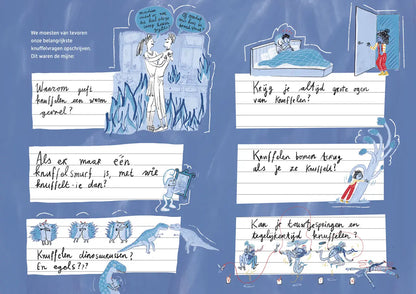 We moesten van tevoren
onze belangrijkste
knuffelvragen opschrijven.
Dit waren de mijne:
Waarom geeft
knuffelen een warm
gevoel?
Als er maar één
knuffelsmurf is, met wie
knuffelt-ie dan?
Knuffelen dinosaurussen?
En egels?!?
Krijg je altijd grote ogen
van knuffelen?
Knuffelen bomen terug
als je ze knuffelt?
Kan je touwtjespringen en
tegelijkertijd knuffelen?